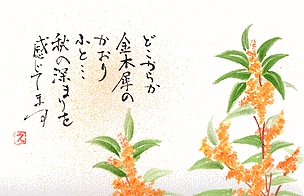 どこからか
金木犀の
かおり
ふと…
秋の深まりを
感じてます